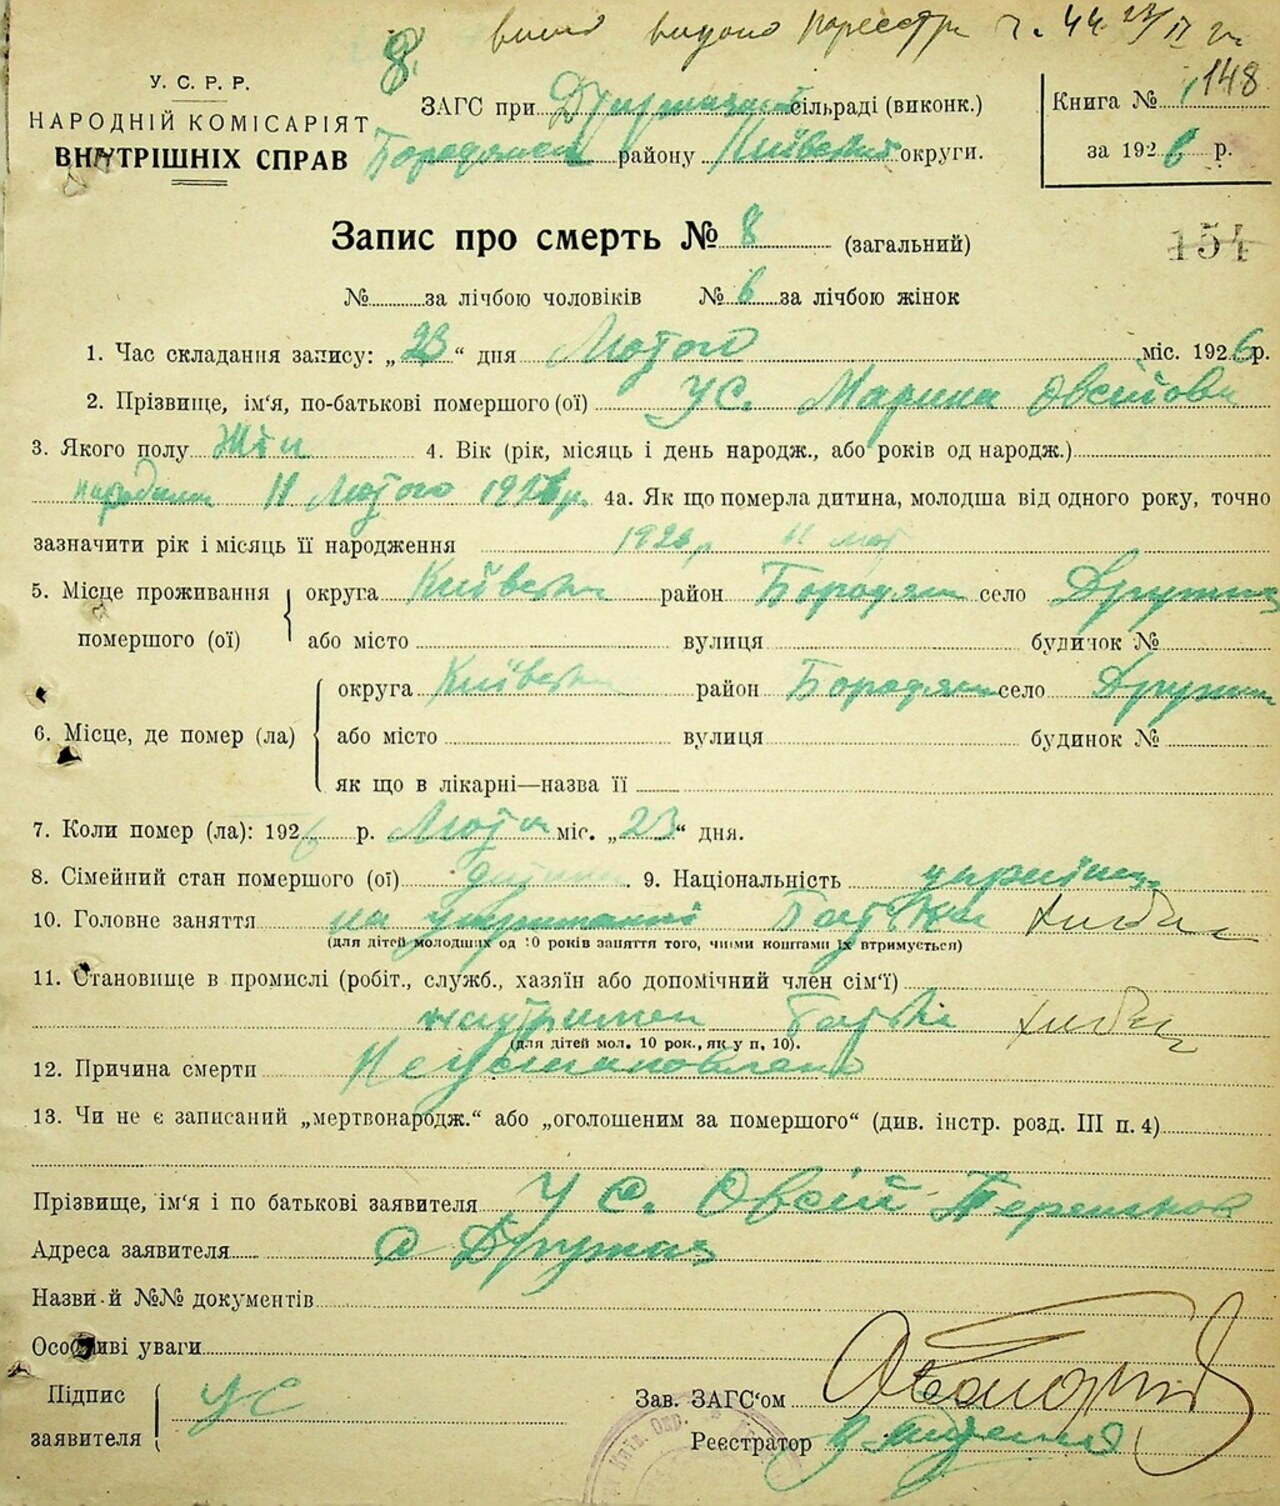 видано по реєстру ч. 44 23/II
8.
У. С. Р. Р.
НАРОДНІЙ КОМІСАРІЯТ
ВНУТРІШНІХ СПРАВ
ЗАГС при сільраді (виконк.)
району Київської округи.
Книга № 148
за 1926 р.
Запис про смерть № 8 (загальний)
154
№ за лічбою чоловіків № 6 за лічбою жінок
1. Час складання запису: „23“ дня Лютого міс. 1926 р.
2. Прізвище, ім‘я, по-батькові помершого (ої) УС. Марина Овсіїова
3. Якого полу Жін 4. Вік (рік, місяць і день народж., або років од народж.)
11 Лютого 1926 р. 4а. Як що померла дитина, молодша від одного року, точно
зазначити рік і місяць її народження 1926 р 11 лют
5. Місце проживання округа Київська район Бородян село Дружня
помершого (ої) або місто вулиця будинок №
округа Київська район Бородян село Дружня
6. Місце, де помер (ла) або місто вулиця будинок №
як що в лікарні—назва її
7. Коли помер (ла): 1926 р. Люто міс. „23“ дня.
8. Сімейний стан помершого (ої) дитина. 9. Національність україн
10. Головне заняття на утриманні Батька хлібор
(для дітей молодших од 10 років заняття того, чиїми коштами їх втримується)
11. Становище в промислі (робіт., служб., хазяїн або допомічний член сім‘ї)
Батьк
(для дітей мол. 10 рок., як у п. 10).
12. Причина смерти Неустановлено
13. Чи не є записаний „мертвонародж.“ або „оголошеним за помершого“ (див. інстр. розд. III п. 4)
Прізвище, ім‘я і по батькові заявителя УС. Овсій
Адреса заявителя с Дружня
Назви й №№ документів
Особливі уваги
Підпис заявителя УС
Зав. ЗАГС‘ом
Реєстратор
Київ. Окр.